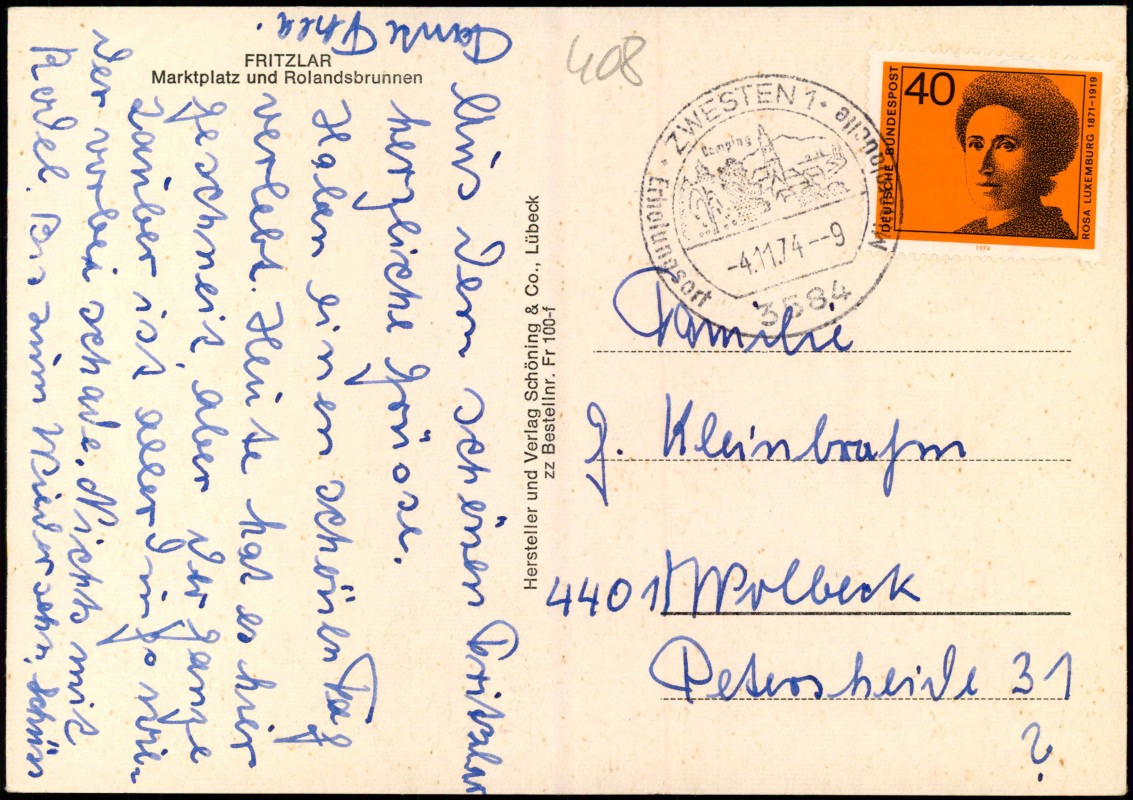 FRITZLAR
Marktplatz und Rolandsbrunnen
Aus dem schönen Fritzlar
herzliche Grüsse.
Haben einen schönen Tag
verlebt. Heute hat es hier
geschneit, aber der ganze
Zauber ist allerdings wie-
der vorbei schade. Nichts mit
Rodel. Bis zum Wiedersehn,
Tante Thea.
Hersteller und Verlag Schöning & Co., Lübeck
zz Bestellnr. Fr 100-f
408
ZWESTEN 1
Erholungsort
Camping
-4.11.74--9
3584
40
DEUTSCHE BUNDESPOST
ROSA LUXEMBURG 1871-1919
1974
Familie
J. Kleinbrahm
4401 Wolbeck
Petersheide 31
?